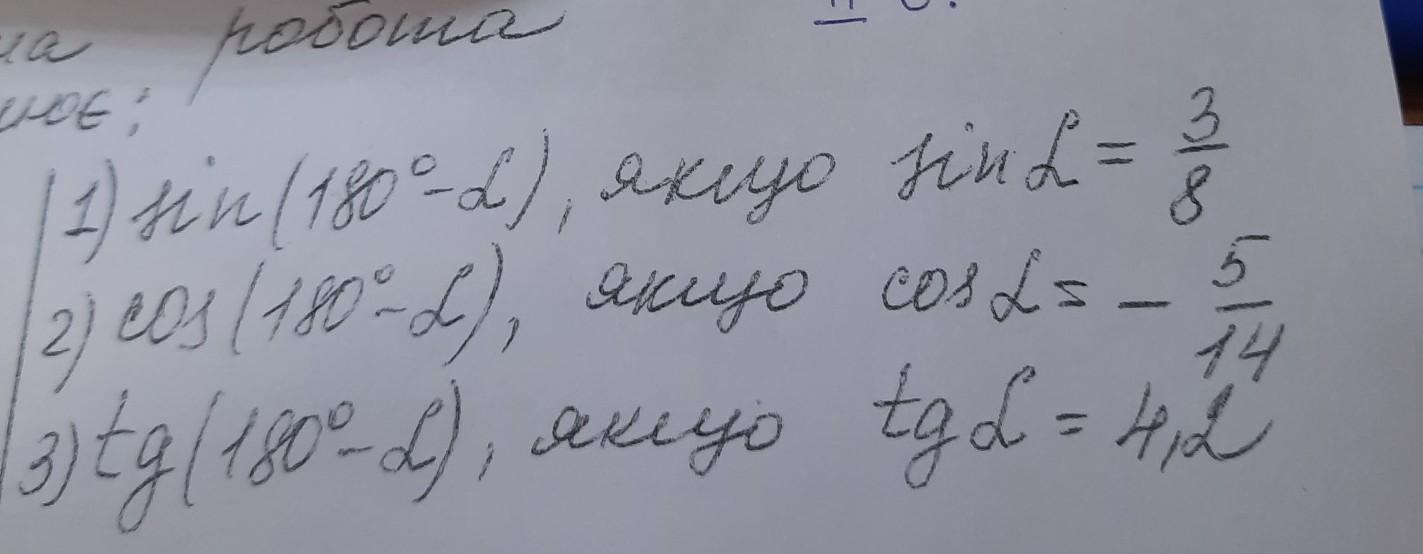 робота
1) sin(180°-α), якщо sin α = 3/8
2) cos(180°-α), якщо cos α = - 5/14
3) tg(180°-α), якщо tg α = 4,2